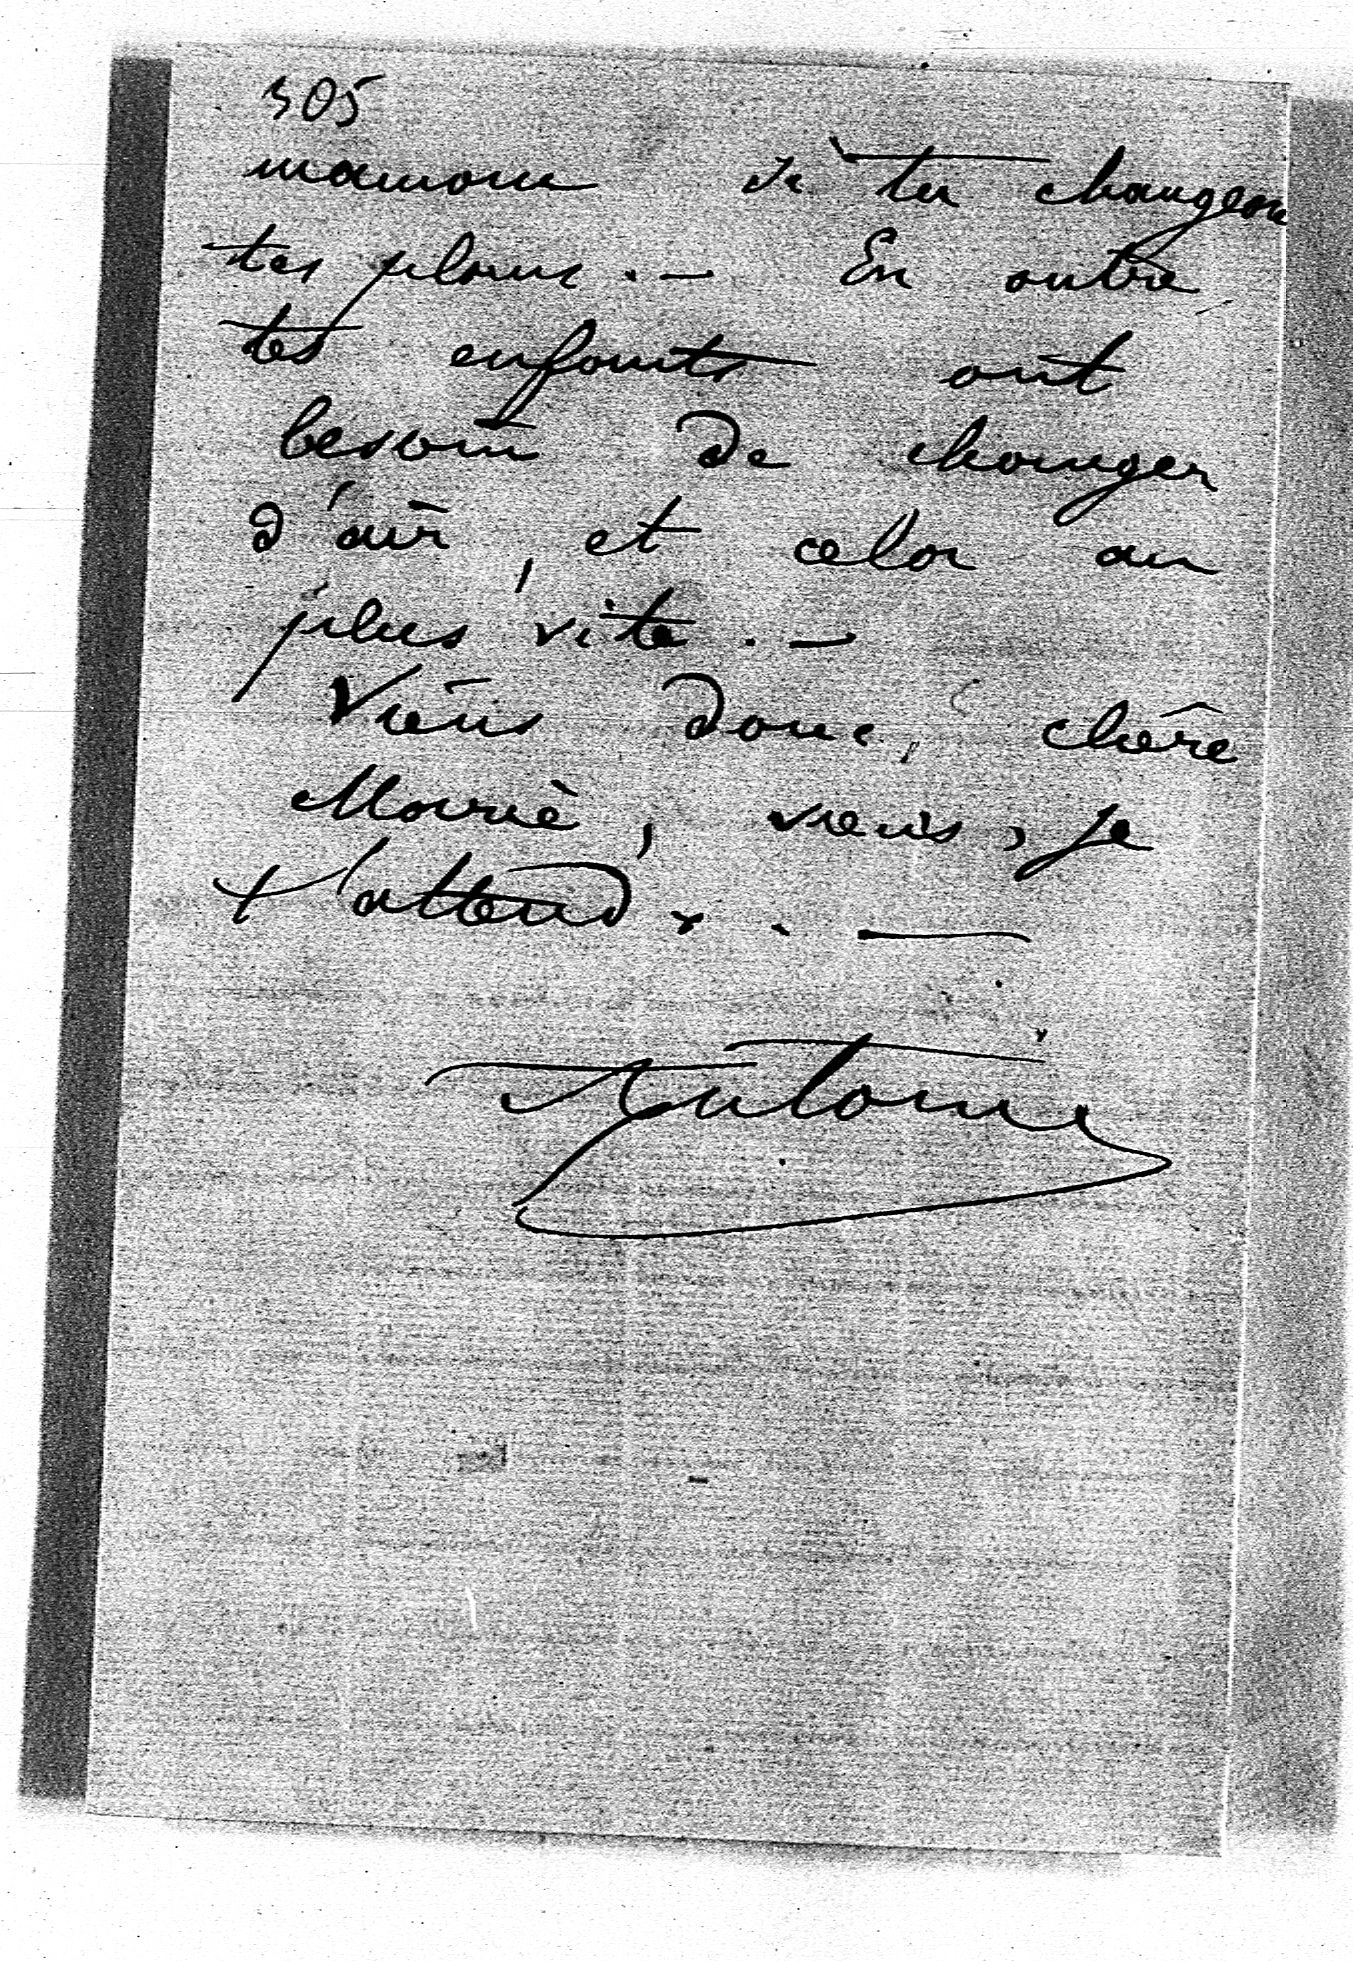 305
maman si tu changeais
tes plans. — En outre
tes enfants ont
besoin de changer
d'air, et cela au
plus vite. —
Viens donc, chère
Marie, viens, je
t'attends. . —
Antoine